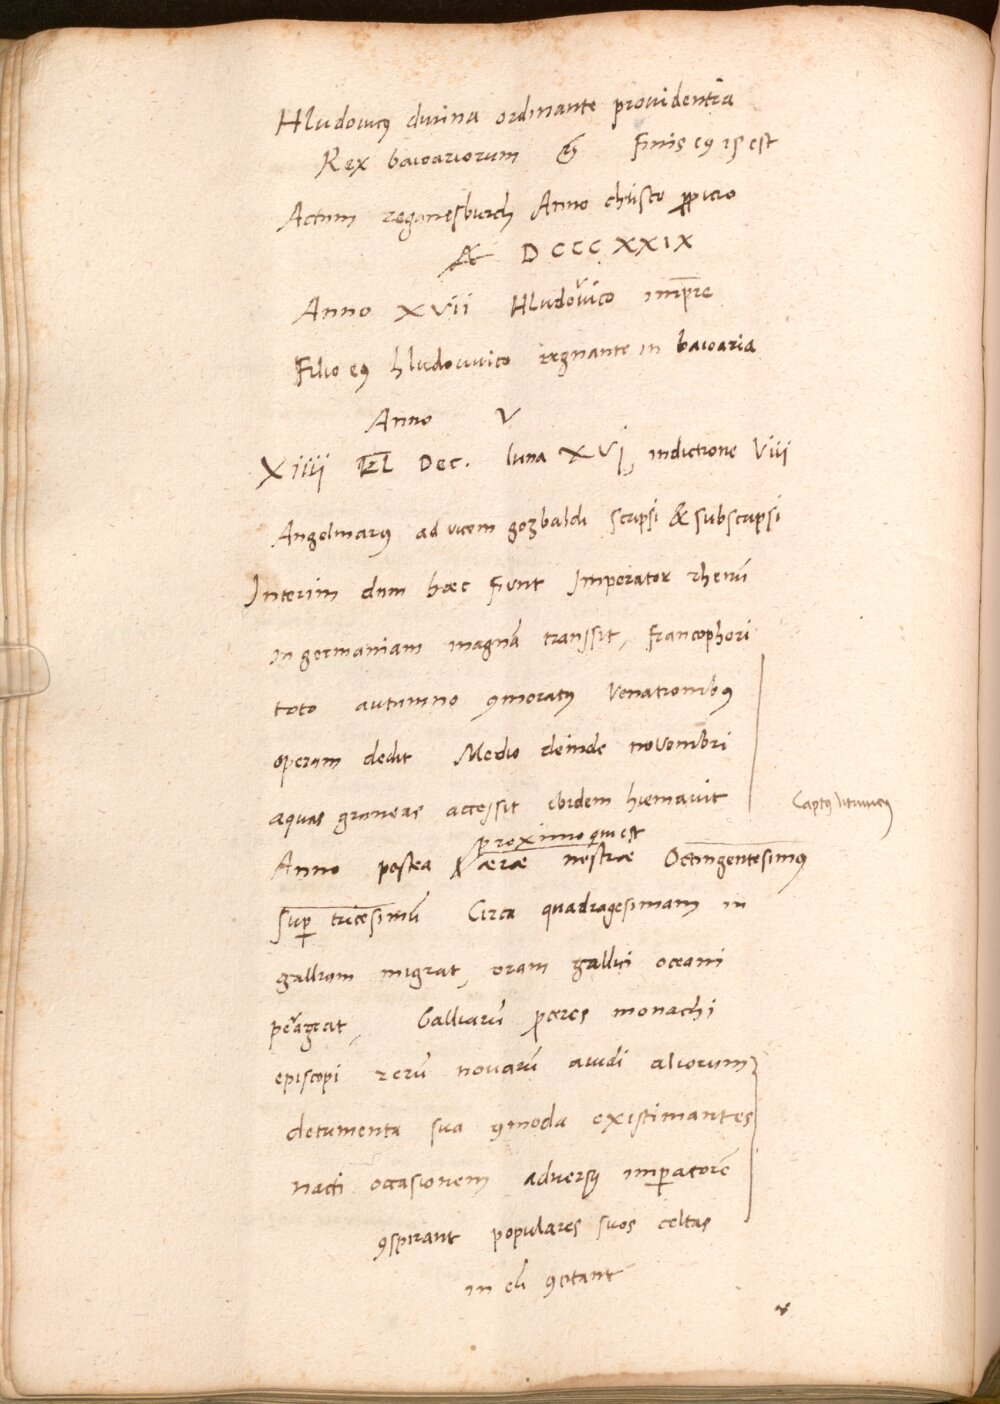 Hludouicꝯ diuina ordinante prouidentia
Rex baioariorum & finis eꝯ is est
Actum reganesburch Anno christo ꝓpicio
DCCCXXIX
Anno XVII Hludouuico imp̄re
Filio eꝯ hludouuico regnante in baioaria
Anno V
Xiiii kl̄ Dec. luna XVI, indictione Viii
Angelmarꝯ ad uicem gozbaldi scripsi & subscripsi
Interim dum haec fiunt Imperator rhenū
in germaniam magnā transsit, francophori
toto autumno ꝯmoratꝯ Venationibꝯ
operam dedit Medio deinde novembri
aquas graneas accessit ibidem hiemauit
Captꝯ
proximo qui est
Anno postea aerae nostrae Octingentesimꝯ
suꝑ tricesimū Circa quadragesimam in
galliam migrat, oram gallici oceani
peragrat, Galliarū ꝓceres monachi
episcopi rerū nouarū auidi aliorum
detrimenta sua ꝯmoda existimantes
nacti occasionem aduersꝯ imꝑatorē
ꝯspirant populares suos celtas
in eū ꝯcitant